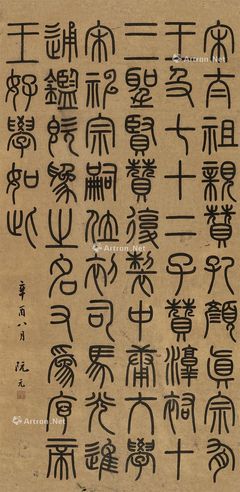 宋太祖親贊孔顏真宗有
王及七十二子贊淳祐十
二聖賢贊復製中庸大學
宋神宗嗣位初司馬光進
通鑑賜之名又為宣帝
王好學如此
辛酉八月 阮元
Artron.Net
Artron.Net
Artron.Net
Artron.Net